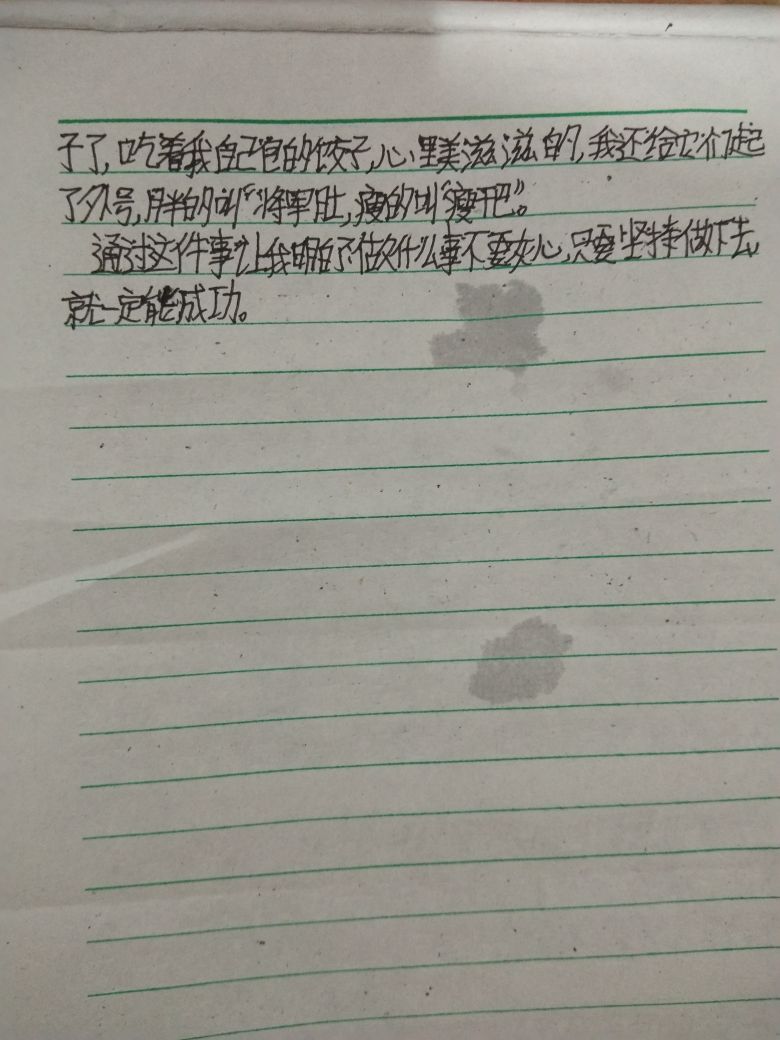 子了,吃着我自己包的饺子,心里美滋滋的,我还给它们起
了外号,胖的叫“将军肚,瘦的叫“瘦巴”。
通过这件事让我明白了做什么事不要灰心,只要坚持做下去,
就一定能成功。